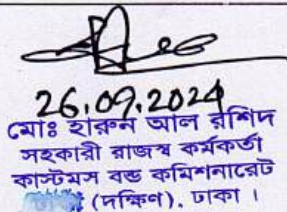 26.09.2024
মোঃ হারুন আল রশিদ
সহকারী রাজস্ব কর্মকর্তা
কাস্টমস বন্ড কমিশনারেট
(দক্ষিণ), ঢাকা ।